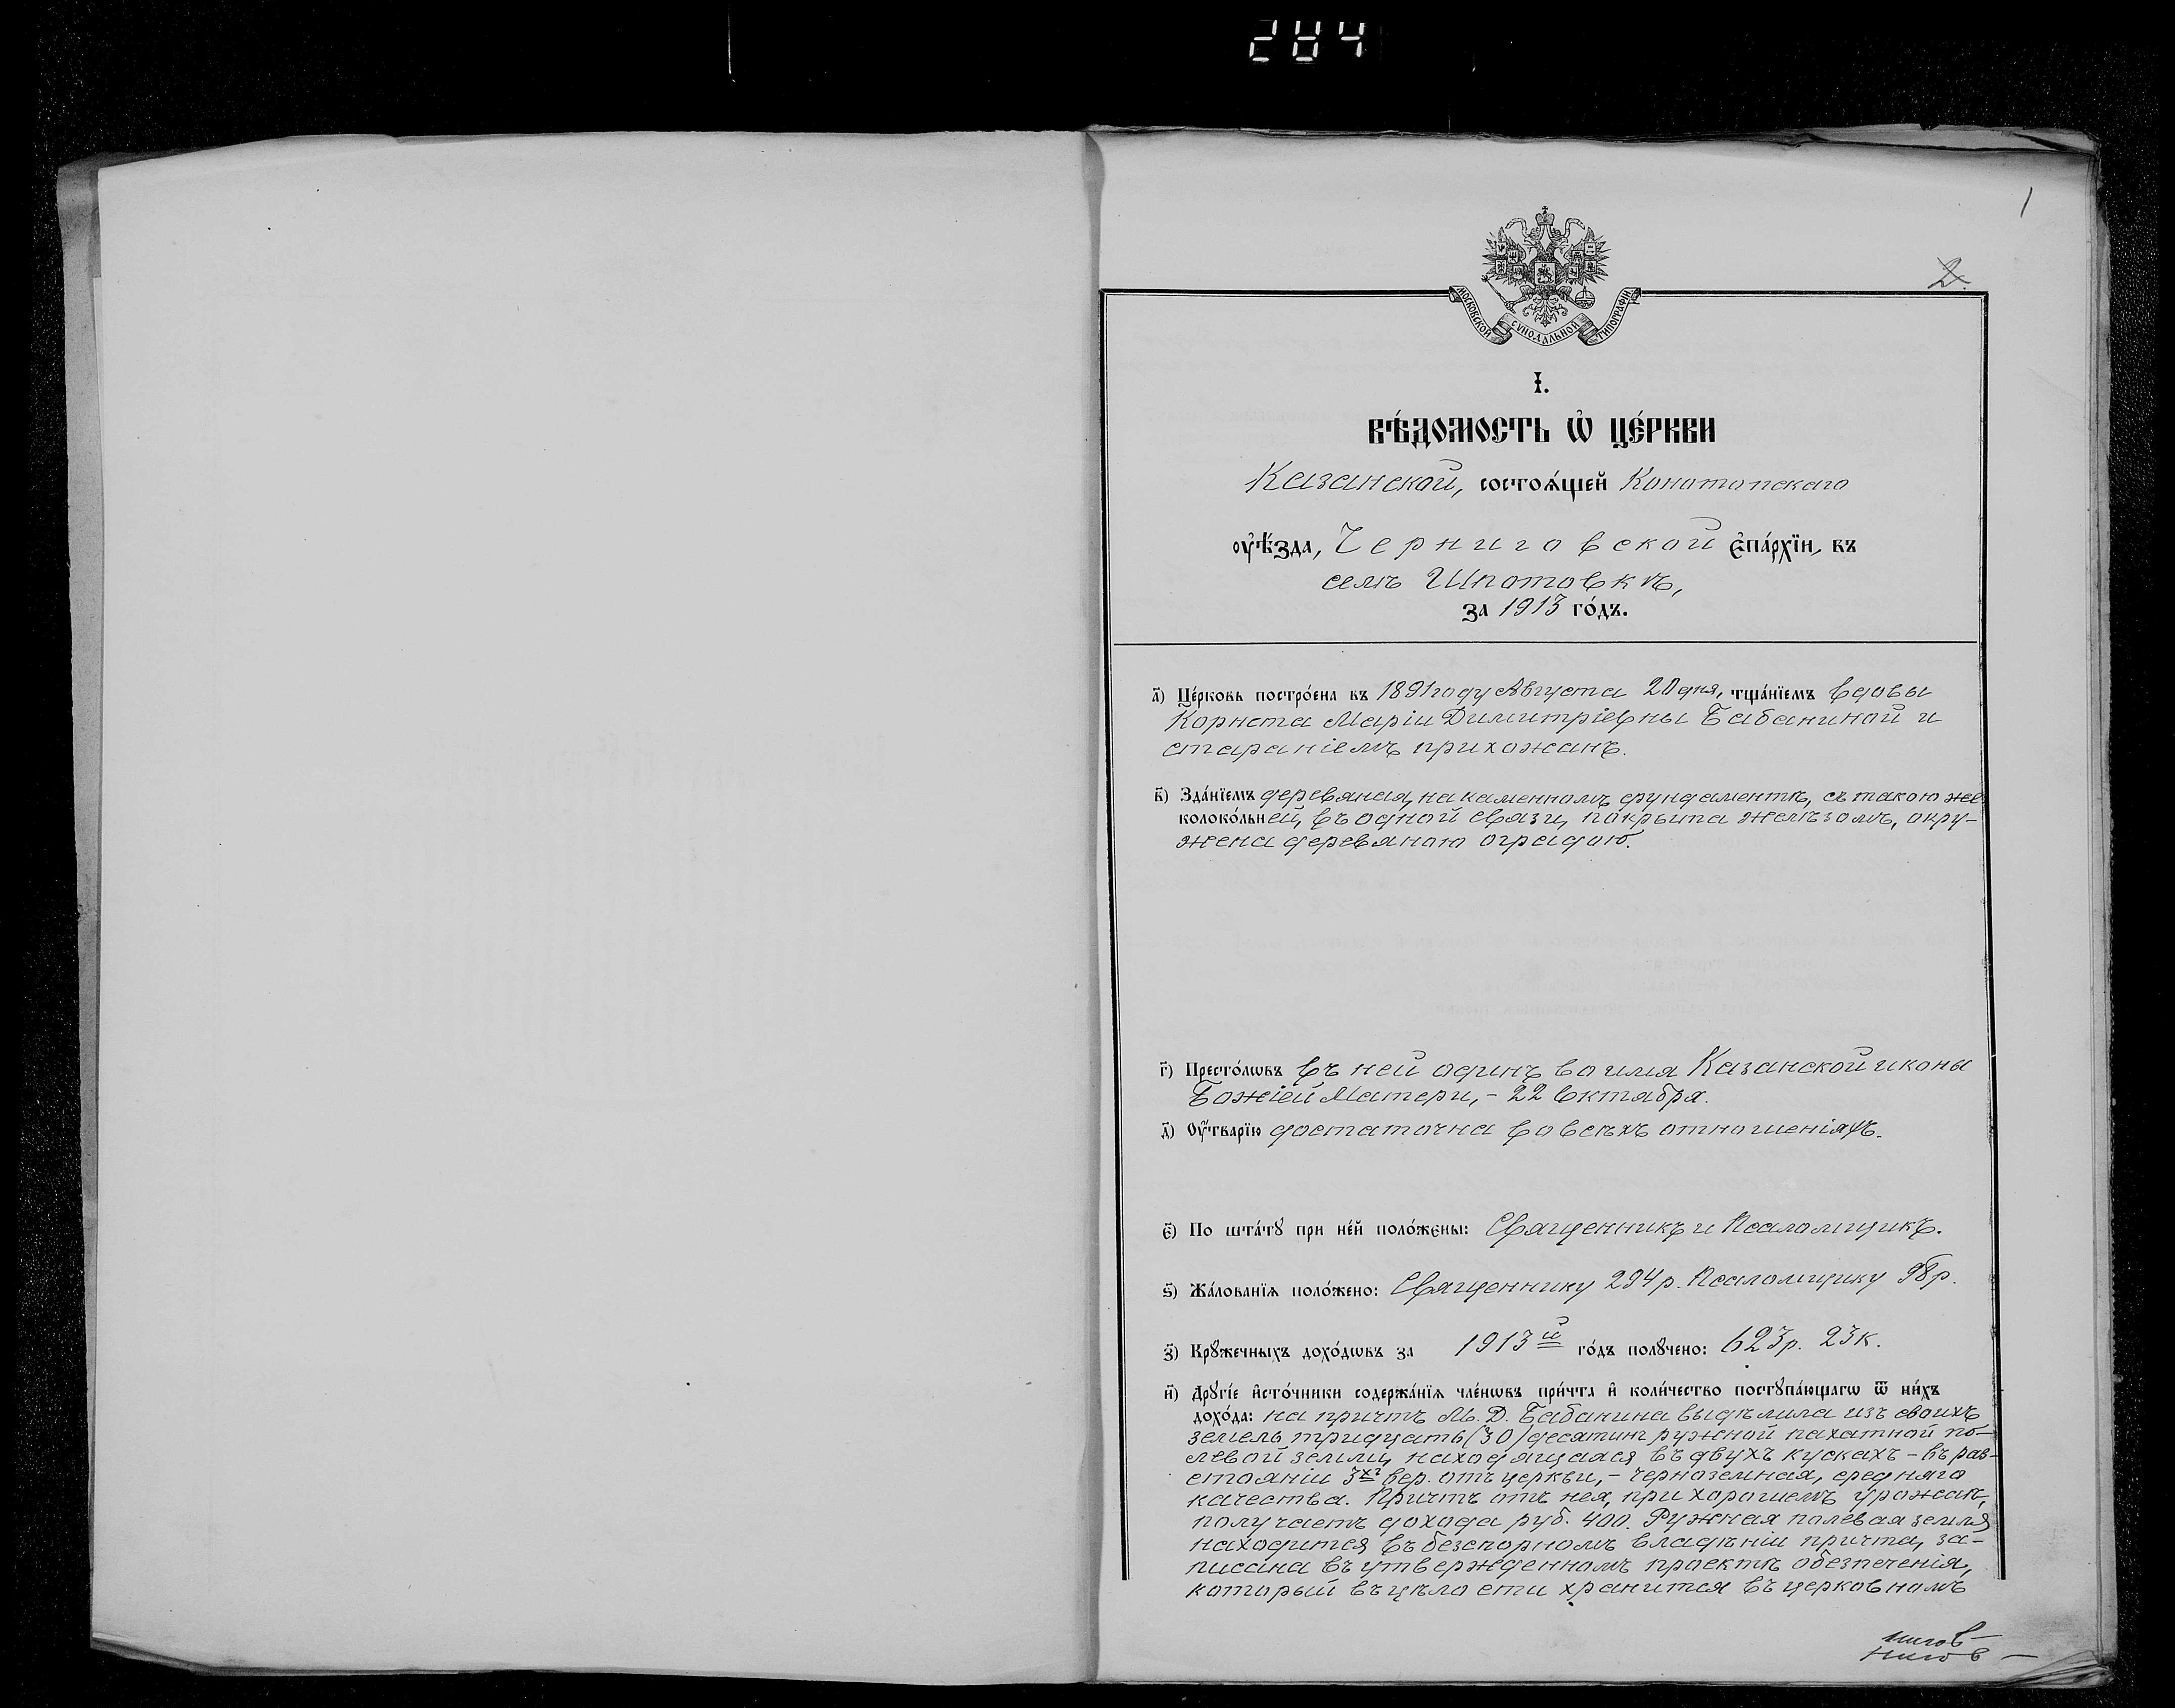 284
1
2.
МОСКОВСКОЙ СУНОДАЛЬНОЙ ТИПОГРАФІИ
I.
ВѢ́ДОМОСТЬ Ѽ ЦЕ́РКВИ
Казанской, состоѧ́щей Конотопскаго
оу҆ѣ́зда, Черниговской є҆па́рхїи, въ
селѣ Шпотовкѣ,
за 1913 го́дъ.
а҃) Це́рковь постро́ена въ 1891 году Августа 20 дня, тща́нїемъ вдовы
Корнета Маріи Димитріевны Бабаниной и
стараніемъ прихожанъ.
в҃) Зда́нїемъ деревяная, на каменномъ фундаментѣ, съ такою же
колоко́льней, въ одной связи, покрыта желѣзомъ, окру-
жена деревяною оградою.
г҃) Престо́лѡвъ въ ней одинъ во имя Казанской иконы
Божіей Матери, - 22 Октября.
д҃) Оу҆́тварїю достаточна во всѣхъ отношеніяхъ.
є҃) По шта́тꙋ при не́й поло́жены: Священникъ и Псаломщикъ.
ѕ҃) Жа́лованїѧ поло́жено: Священнику 294 р. Псаломщику 98 р.
з҃) Крꙋ́жечныхъ дохо́дѡвъ за 1913й го́дъ полꙋ́чено: 623 р. 23 к.
и҃) Дрꙋгі́е и҆сто́чники содержа́нїѧ чле́нѡвъ при́чта и҆ коли́чество постꙋпа́ющагѡ ѿ ни́хъ
дохо́да: на причтъ М. Д. Бабанина выдѣлила изъ своихъ
земель тридцать (30) десятинъ ружной пахатной по-
левой земли, находящаяся въ двухъ кускахъ - въ раз-
стояніи 3хъ вер. отъ церкви, - черноземная, средняго
качества. Причтъ отъ нея, при хорошемъ урожаѣ,
получаетъ дохода руб. 400. Ружная полевая земля
находится въ безспорномъ владѣніи причта, за-
писана въ утвержденномъ проектѣ обезпеченія,
который въ цѣлости хранится въ церковномъ